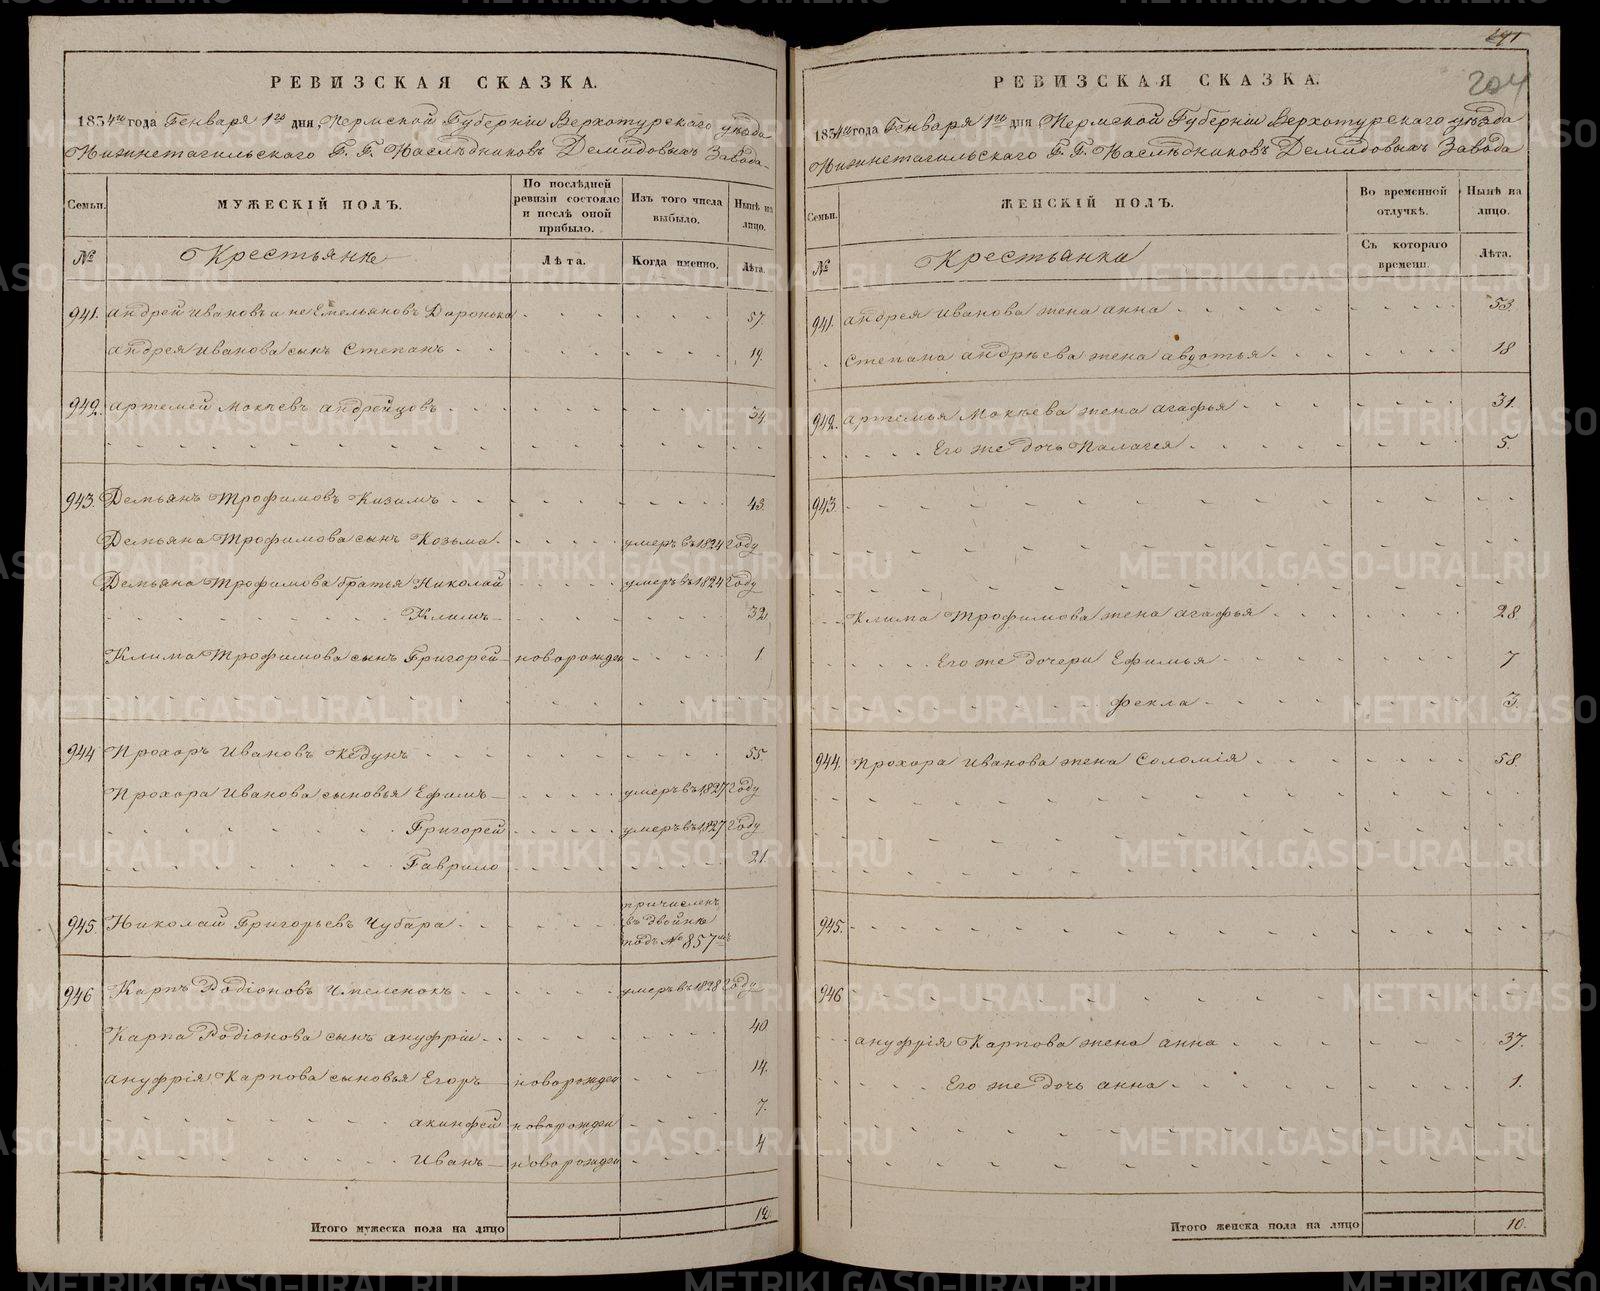 РЕВИЗСКАЯ СКАЗКА.
1834го года Генваря 1го дня, Пермской Губерніи Верхотурскаго уѣзда
Нижнетагильскаго Г. Г. Наслѣдниковъ Демидовыхъ Завода
Семьи.
МУЖЕСКІЙ ПОЛЪ.
По послѣдней ревизіи состояло и послѣ оной прибыло.
Изъ того числа выбыло.
Нынѣ на лицо.
№
Крестьяне
Лѣта.
Когда именно.
Лѣта.
941. Андрей Ивановъ а не Емельяновъ 57.
Андрея Иванова сынъ Степанъ 19.
942. Артемей Мокѣевъ Андрейцовъ 34.
943. Демьянъ Трофимовъ Казамъ 43.
Демьяна Трофимова сынъ Козьма умеръ въ 1824 году
Демьяна Трофимова братья Николай умеръ въ 1824 году
Климъ 32
Клима Трофимова сынъ Григорей новорожден 1
944 Прохоръ Ивановъ Кедунъ 55.
Прохора Иванова сыновья Ефимъ умеръ въ 1827 году
Григорей умеръ въ 1827 году
Гаврило 21.
945. Николай Григорьевъ Чубара причисленъ въ двойнѣ подъ № 857мъ
946 Карпъ Родіоновъ Чмеленокъ умеръ въ 1828 году
Карпа Родіонова сынъ Ануфрій 40
Ануфрія Карпова сыновья Егоръ новорожден 14.
Акинфей новорожден 7.
Иванъ новорожден 4
Итого мужеска пола на лицо 12.
241
204
РЕВИЗСКАЯ СКАЗКА.
1834го года Генваря 1го дня Пермской Губерніи Верхотурскаго уѣзда
Нижнетагильскаго Г. Г. Наслѣдниковъ Демидовыхъ Завода
Семьи.
ЖЕНСКІЙ ПОЛЪ.
Во временной отлучкѣ.
Нынѣ на лицо.
№
Крестьянки
Съ котораго времени.
Лѣта.
941. Андрея Иванова жена Анна 53.
Степана Андрѣева жена Авдотья 18
942. Артемья Мокѣева жена Агафья 31.
Его же дочь Палагея 5.
943.
Клима Трофимова жена Агафья 28.
Его же дочери Ефимья 7
Фекла 3.
944. Прохора Иванова жена Соломія 58.
945.
946
Ануфрія Карпова жена Анна 37.
Его же дочь Анна 1.
Итого женска пола на лицо 10.
METRIKI.GASO-URAL.RU